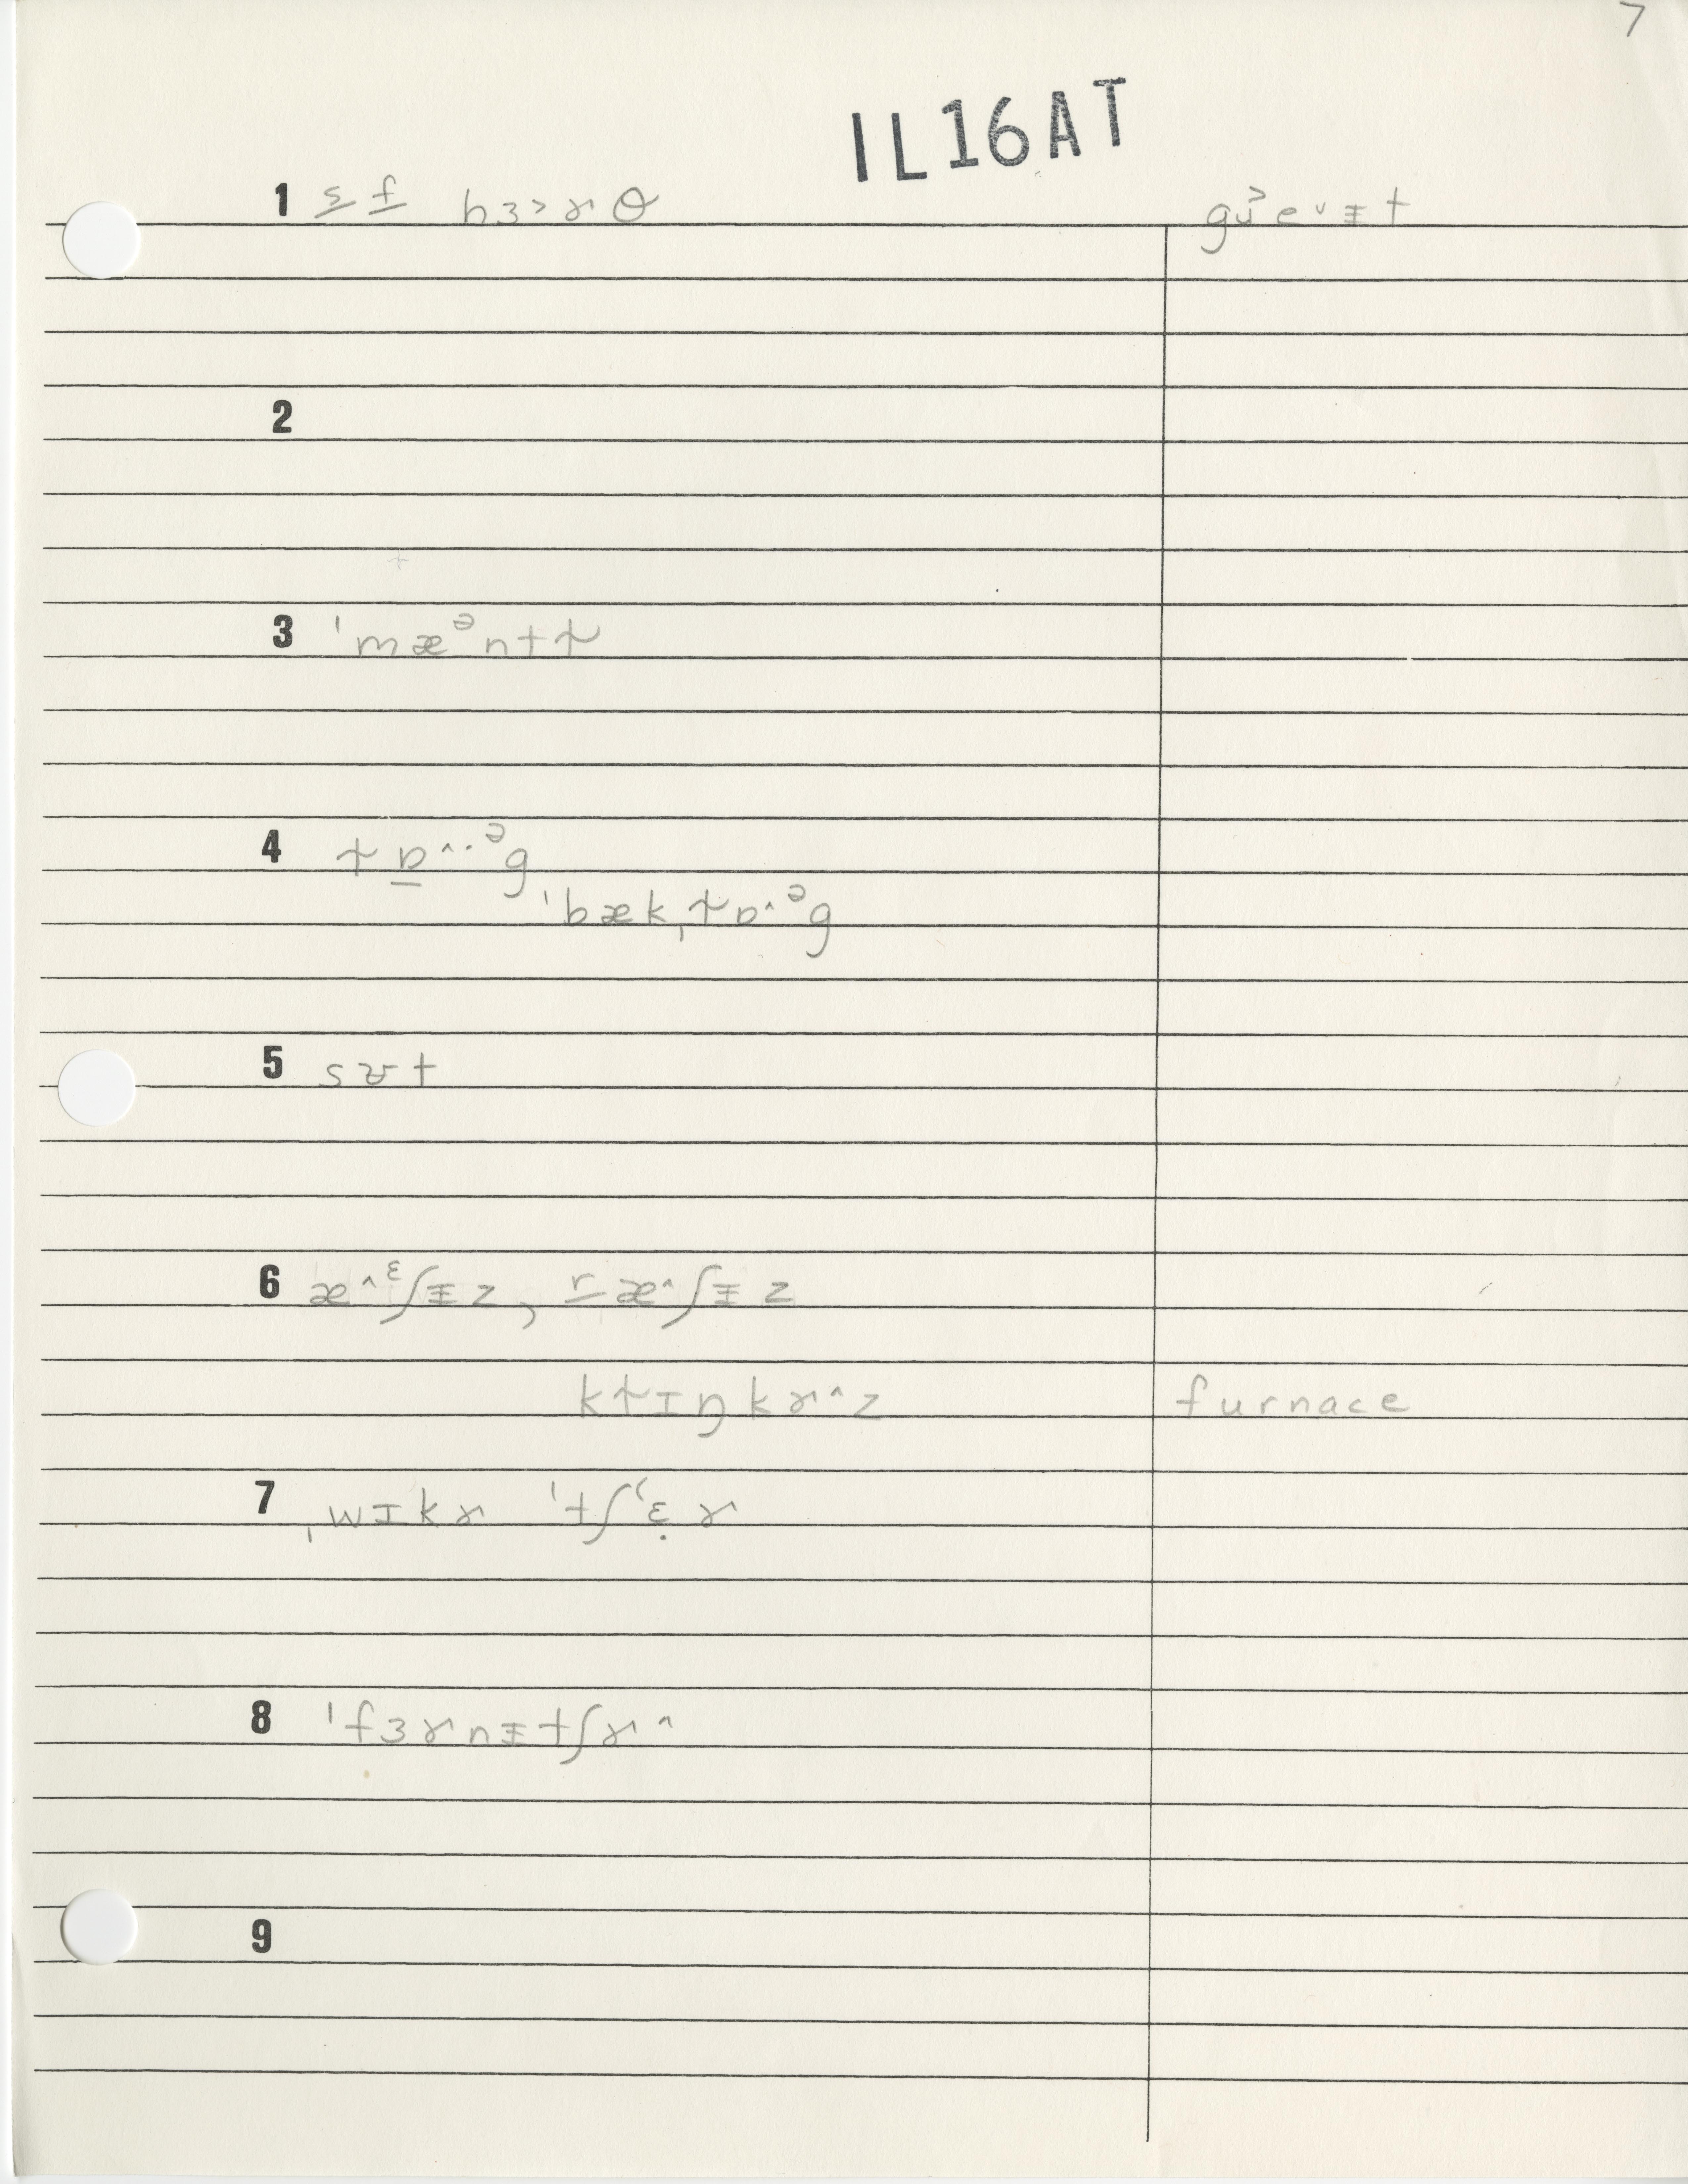 7
IL16AT
1 s̲ f̲ hɜ˃ɤθ gʉ˃e˅ɪ̵t
2
3 ˈmæᵊntɫ
4 ɫɒ̲^··ᵊg
ˈbækˌɫɒ^ᵊg
5 sʊt
6 æ^ᵋʃɪ̵z, r̲æ^ʃɪ̵z
kɫɪŋkɤ^z furnace
7 ˌwɪkɤ ˈtʃʻɛ̣ɤ
8 ˈfɜɤnɪ̵tʃɤ^
9